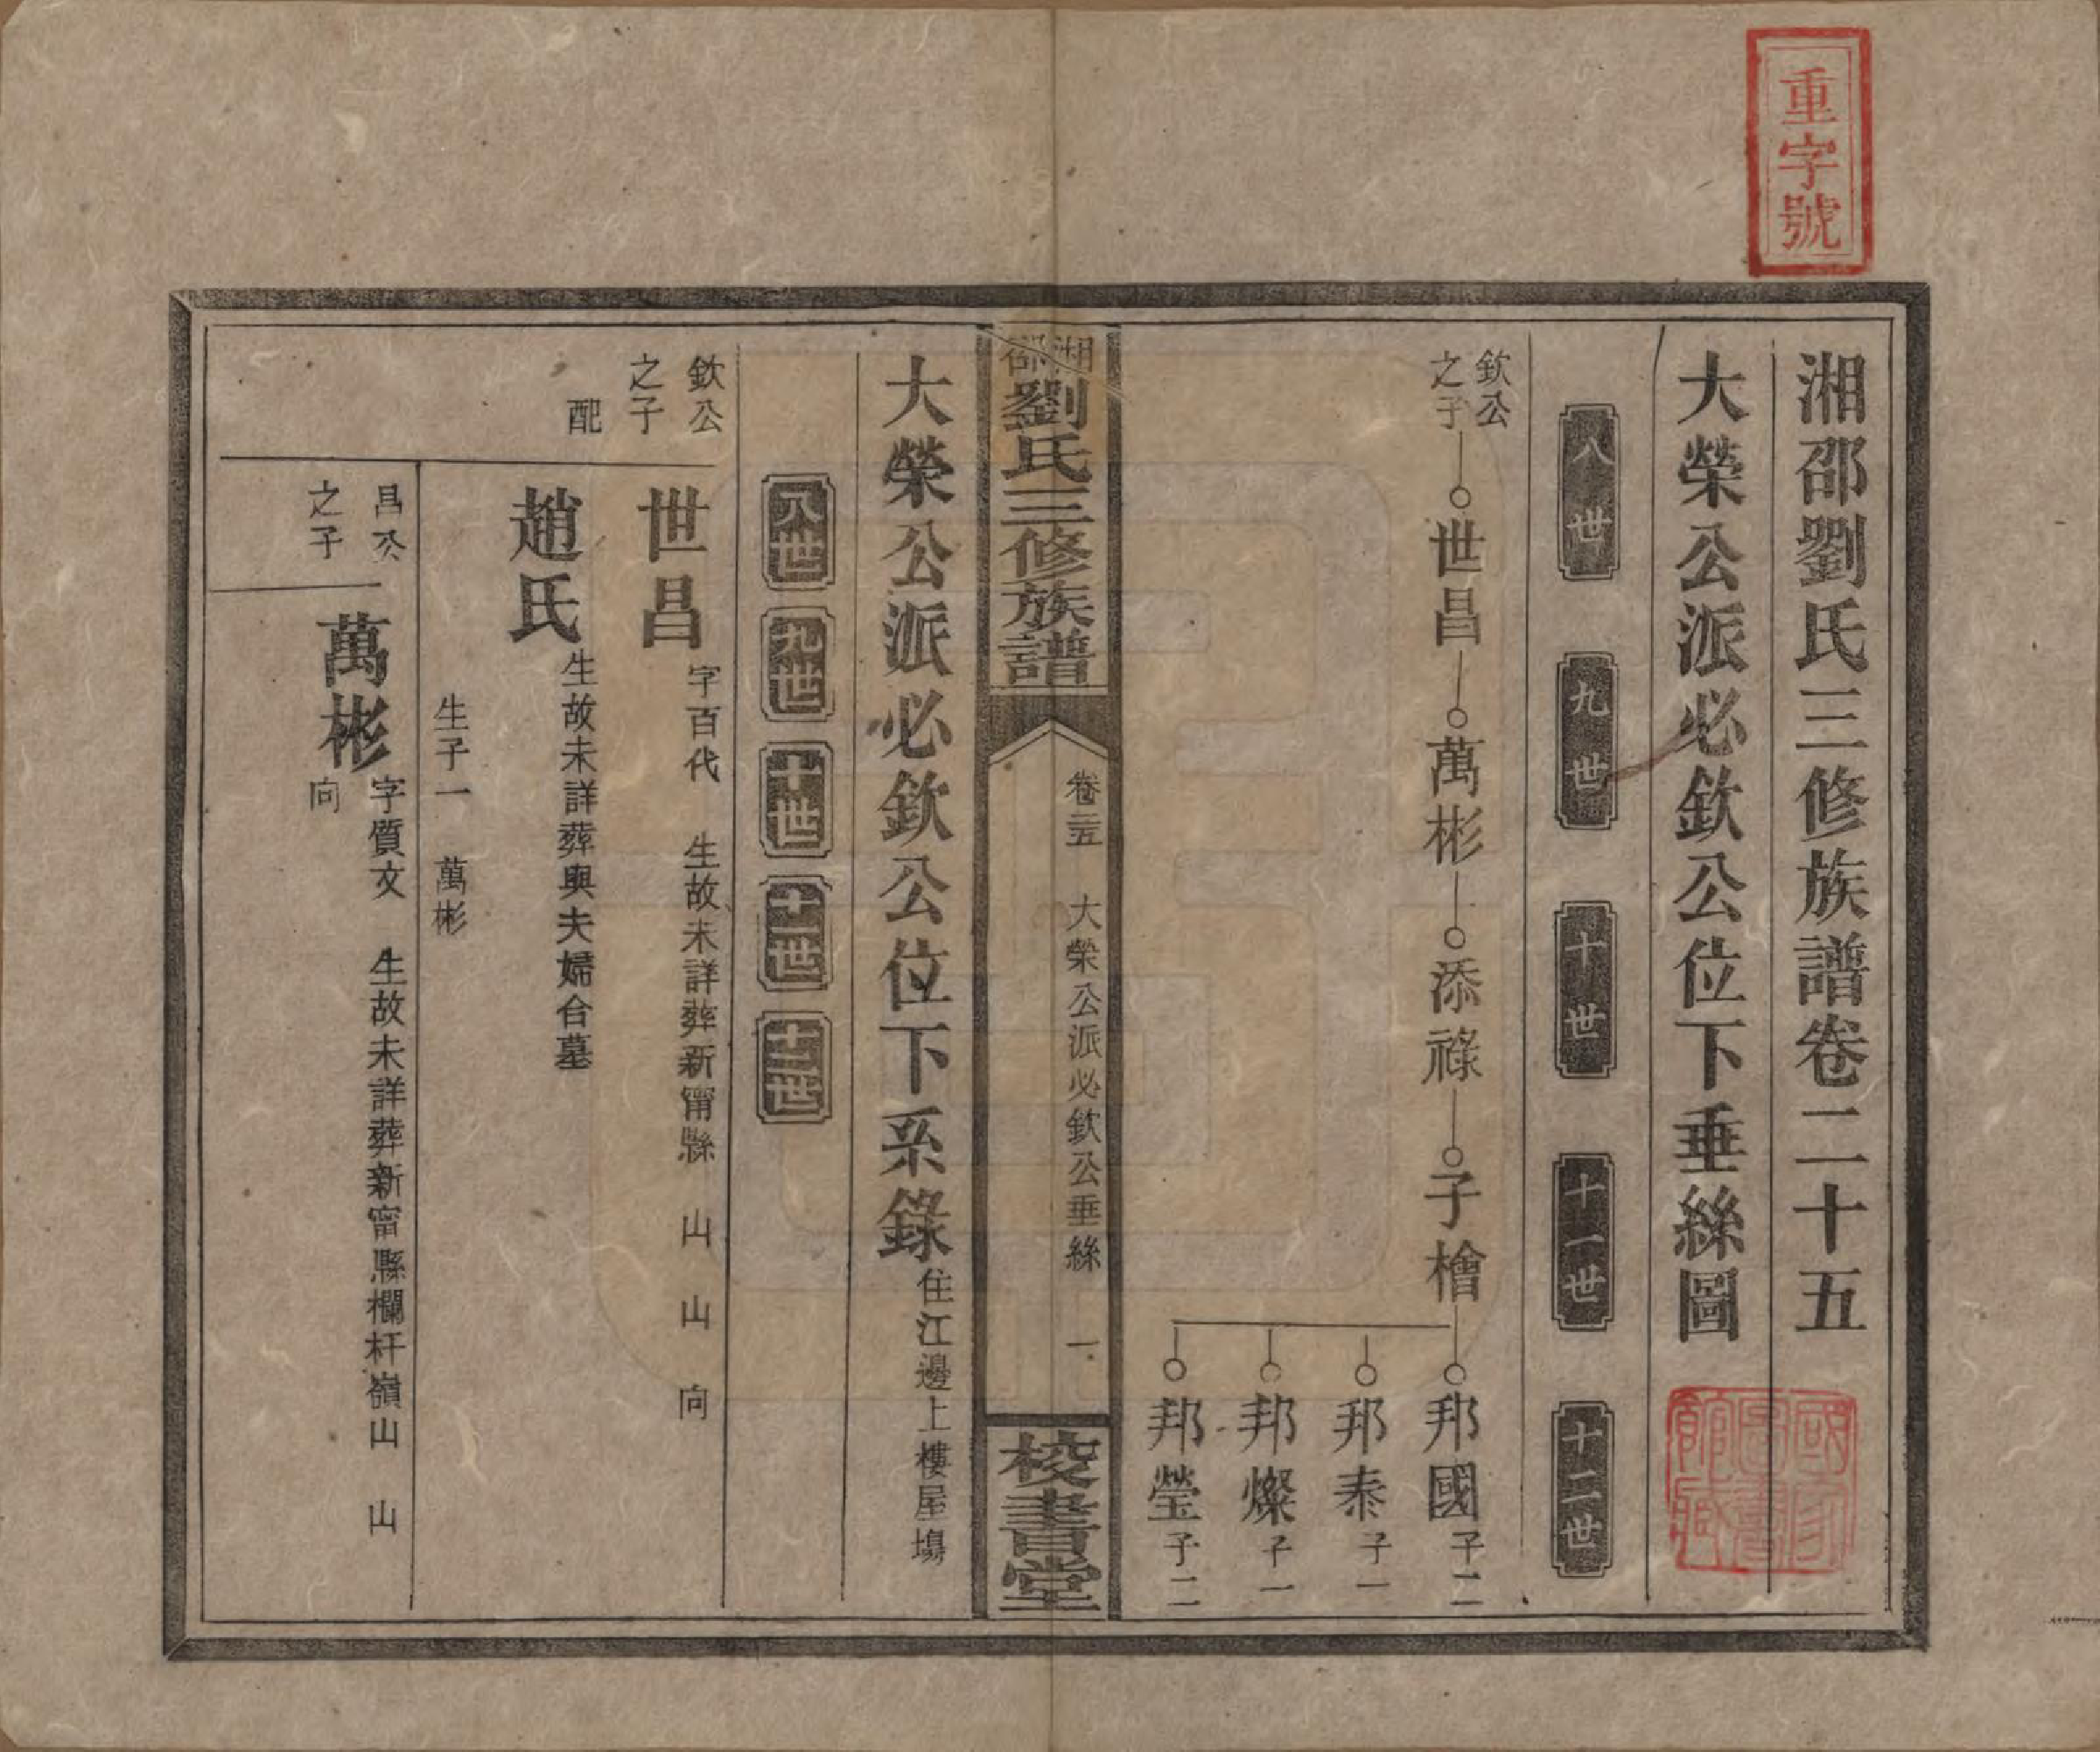 重字號
湘邵劉氏三修族譜卷二十五
大榮公派必欽公位下垂絲圖
國家圖書館藏
八世 九世 十世 十一世 十二世
欽公之子 世昌 萬彬 添祿 子檜 邦國 子二
邦泰 子一
邦燦 子一
邦瑩 子二
湘邵劉氏三修族譜 卷二五 大榮公派必欽公垂絲 一 校書堂
大榮公派必欽公位下系錄 住江邊上樓屋塲
八世 九世 十世 十一世 十二世
欽公之子 世昌 字百代 生故未詳葬新甯縣 山 山 向
配 趙氏 生故未詳葬與夫婦合墓
生子一 萬彬
昌公之子 萬彬 字質文 生故未詳葬新甯縣欄杆嶺山 山
向